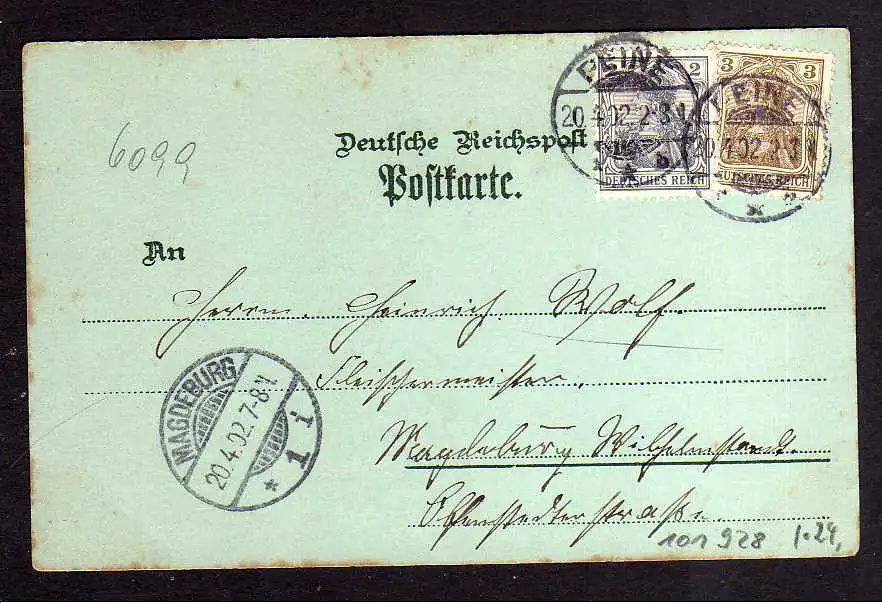 PEINE
20.4.02.2-3N
b
2
DEUTSCHES REICH
3
PEINE
20.4.02.2-3N
DEUTSCHES REICH
Deutsche Reichspost
Postkarte.
6099
An
Herrn Heinrich Wolf.
Fleischermeister
Magdeburg Wilhelmstadt.
Olvenstedterstraße
MAGDEBURG
20.4.02.7-8N
* 1 i
101928 1.24,